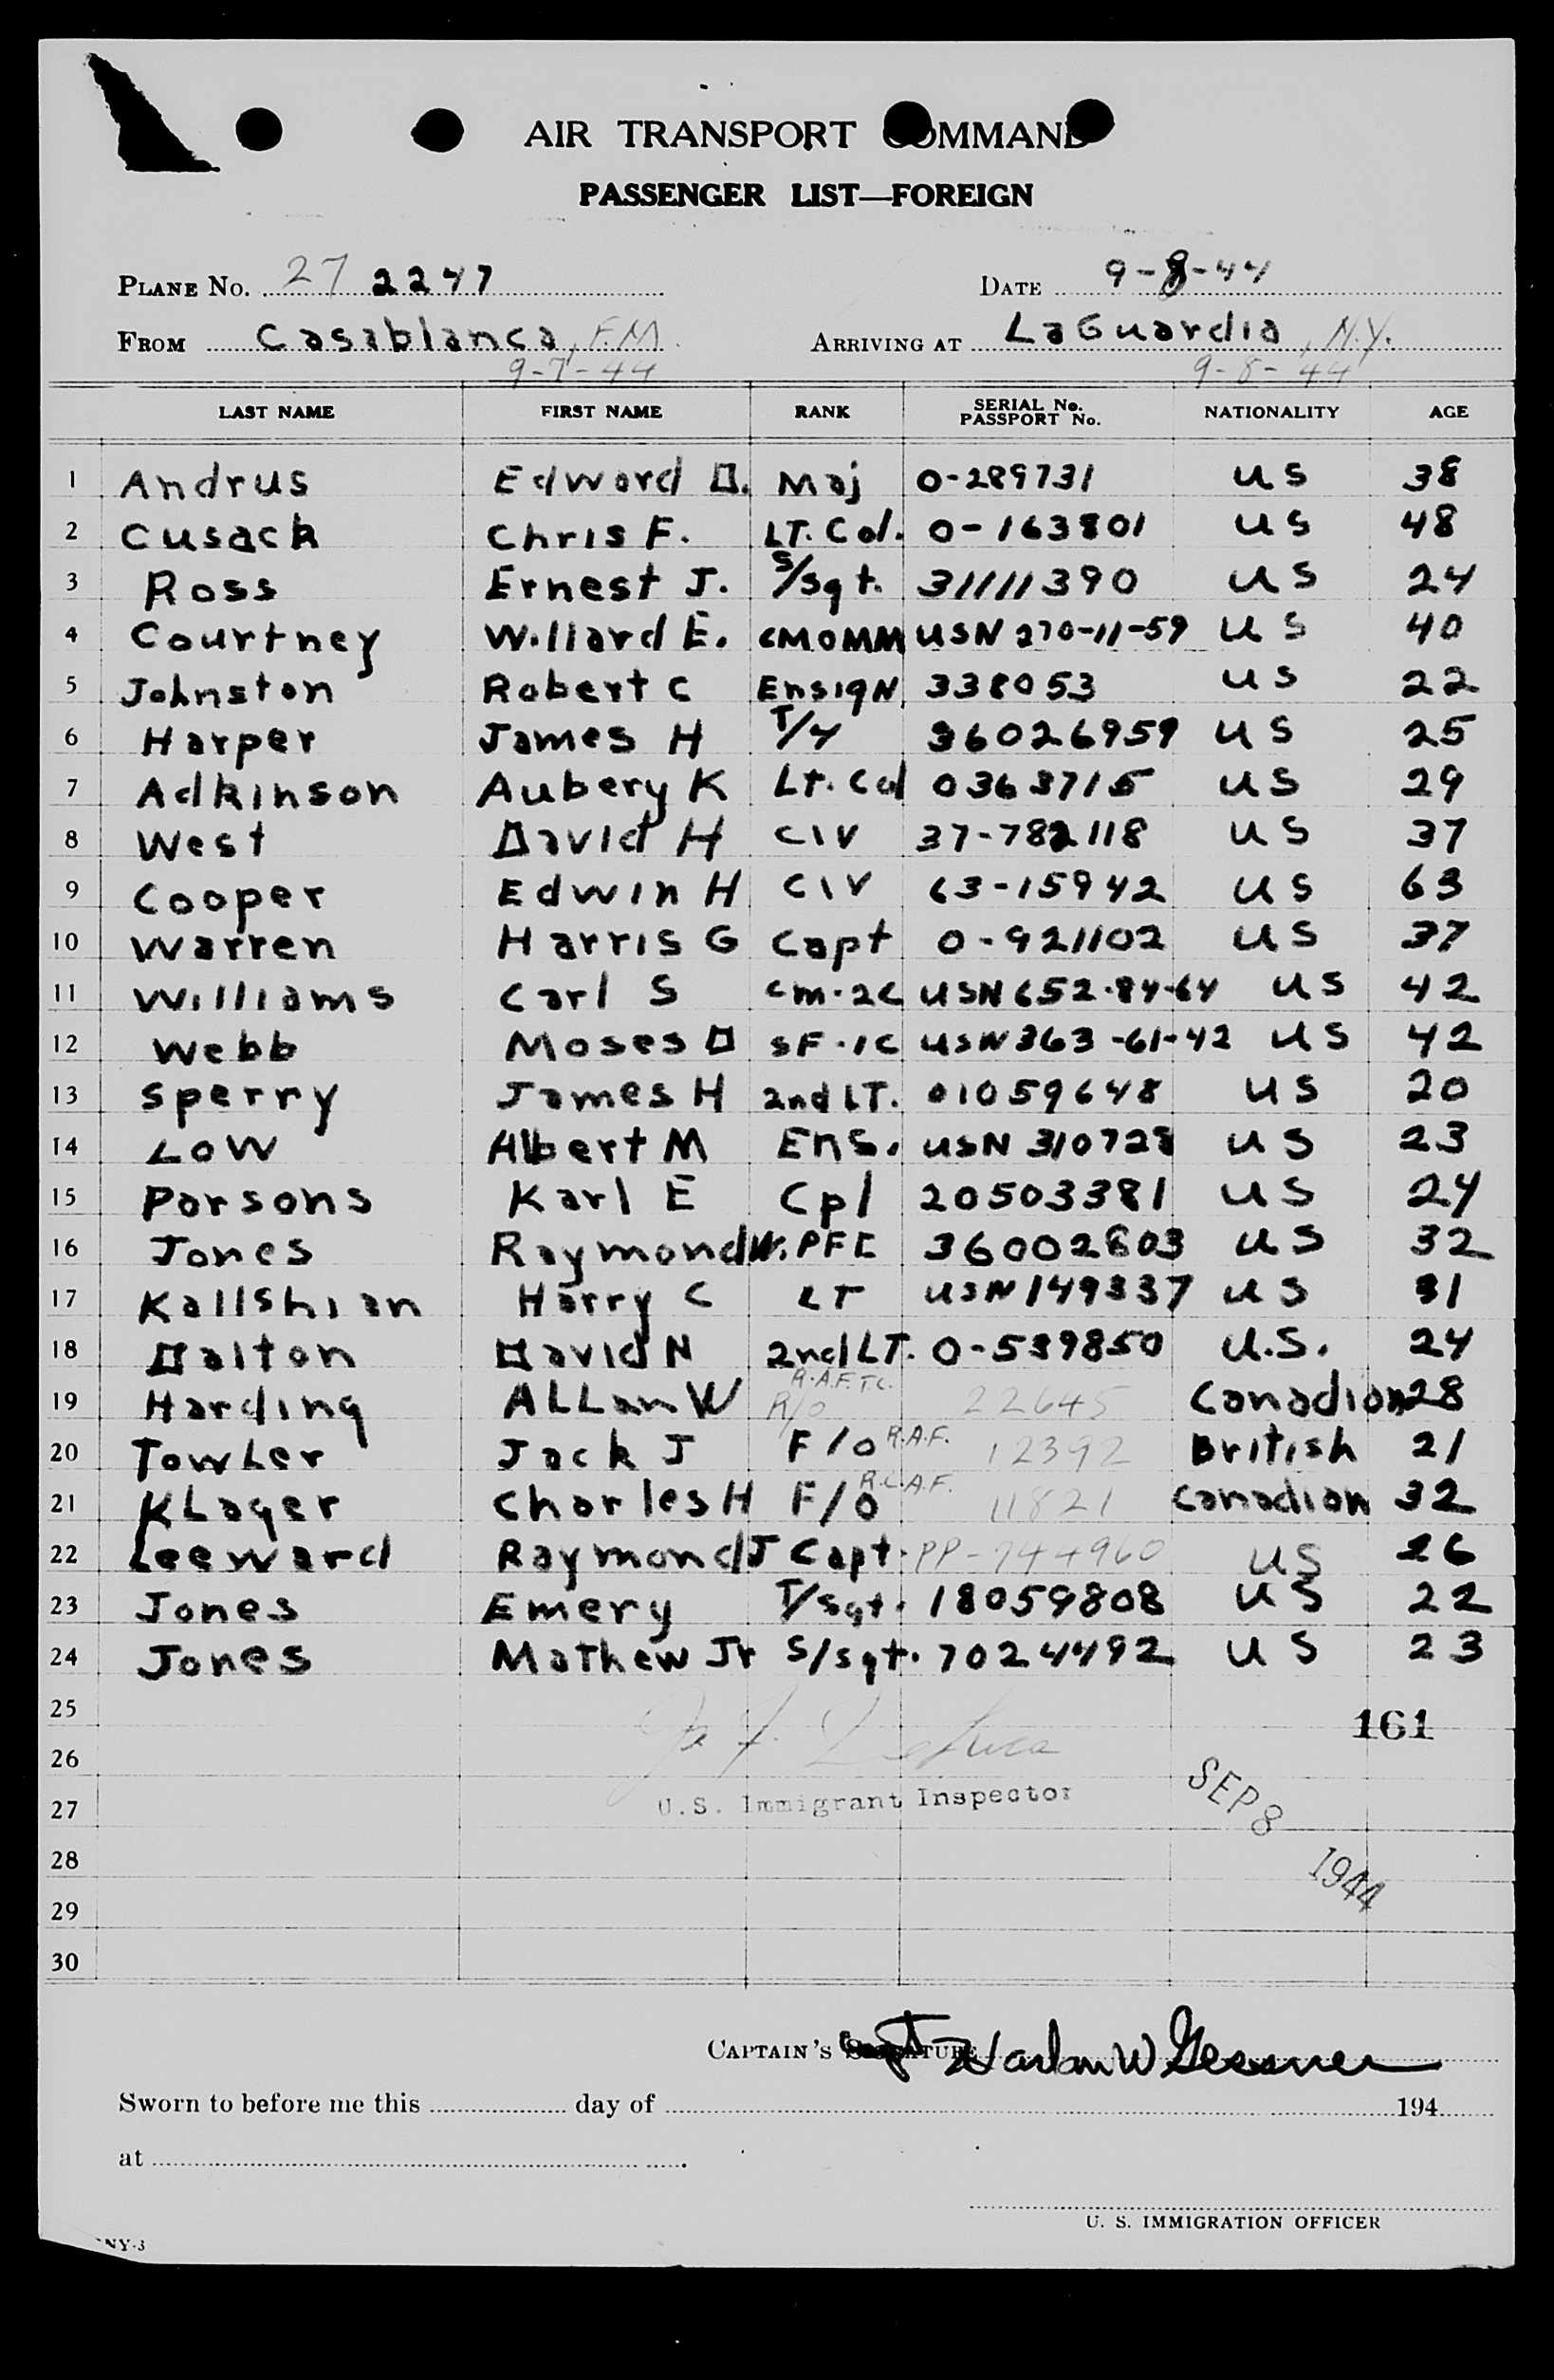 AIR TRANSPORT COMMAND
PASSENGER LIST—FOREIGN
PLANE No. 27 2247 DATE 9-8-44
FROM Casablanca, F.M. ARRIVING AT LaGuardia, N.Y.
9-7-44 9-8-44
LAST NAME FIRST NAME RANK SERIAL No. PASSPORT No. NATIONALITY AGE
1 Andrus Edward D. Maj 0-289731 US 38
2 Cusack Chris F. LT. Col. 0-163801 US 48
3 Ross Ernest J. S/Sgt. 31111390 US 24
4 Courtney Willard E. CMOMM USN 270-11-59 US 40
5 Johnston Robert C Ensign 338053 US 22
6 Harper James H T/4 36026959 US 25
7 Adkinson Aubery K Lt. Col 0363715 US 29
8 West David H CIV 37-782118 US 37
9 Cooper Edwin H CIV 63-15942 US 63
10 Warren Harris G Capt 0-921102 US 37
11 Williams Carl S CM-2C USN 652-84-64 US 42
12 Webb Moses D SF-1C USN 363-61-42 US 42
13 Sperry James H 2nd LT. 01059648 US 20
14 Low Albert M Ens. USN 310728 US 23
15 Parsons Karl E Cpl 20503381 US 24
16 Jones Raymond W. PFC 36002603 US 32
17 Kallshian Harry C LT USN 149337 US 31
18 Dalton David N 2nd LT. 0-539850 U.S. 24
19 Harding ALLan W R/O R.A.F.T.C. 22645 Canadian 28
20 Towler Jack J F/O R.A.F. 12392 British 21
21 KLager Charles H F/O R.C.A.F. 11821 Canadian 32
22 Leeward Raymond J Capt. PP-744960 US 26
23 Jones Emery T/Sgt. 18059808 US 22
24 Jones Mathew Jr S/Sgt. 7024492 US 23
25 161
26
27 U.S. Immigrant Inspector SEP 8
28 1944
29
30
CAPTAIN'S SIGNATURE Capt Harlan W
Sworn to before me this day of 194
at
U. S. IMMIGRATION OFFICER
NY-3